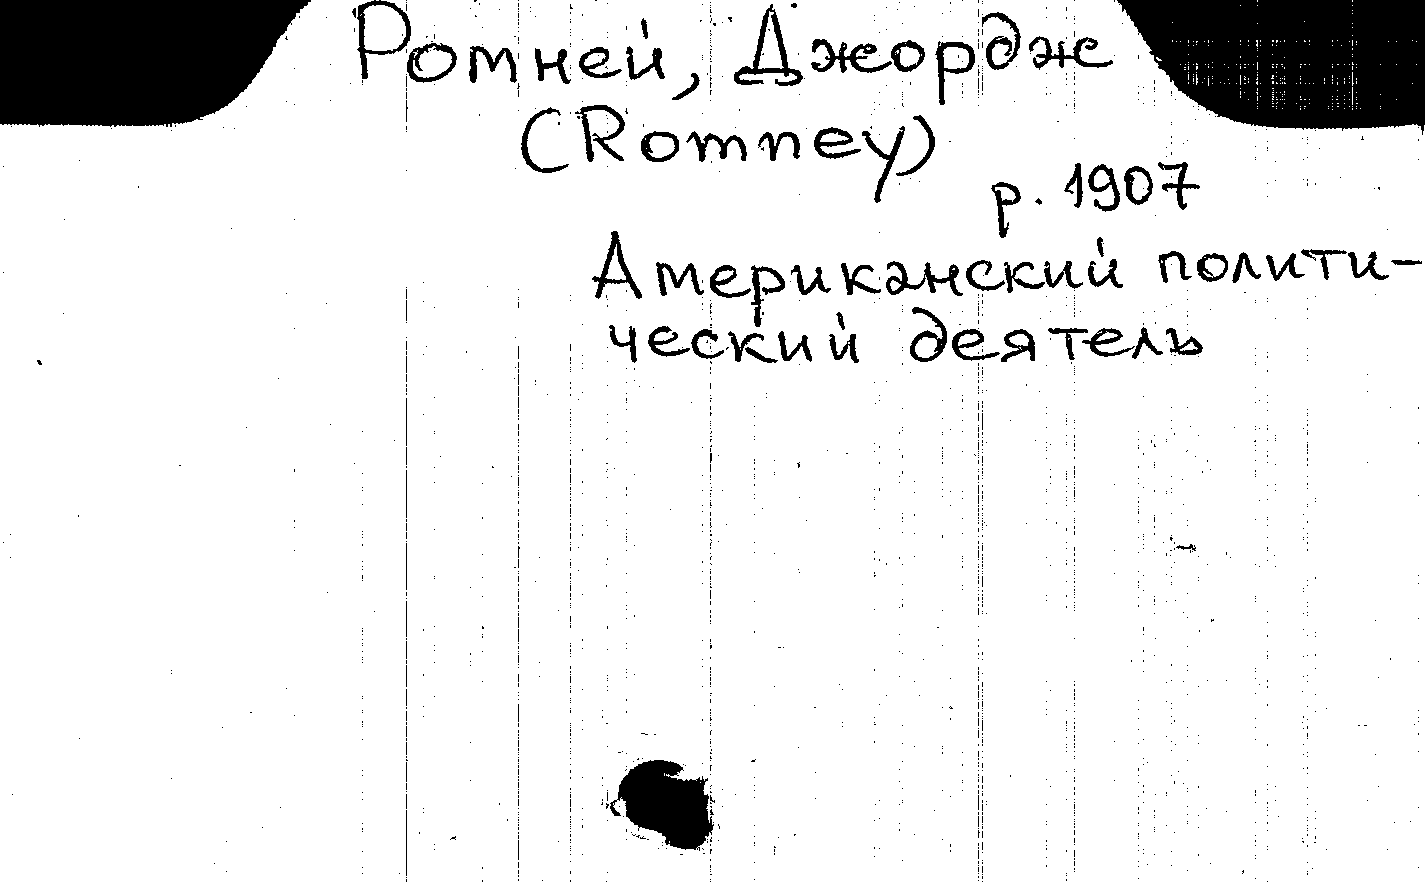 Ромней, Джордж
(Romney)
р. 1907
Американский полити-
ческий деятель